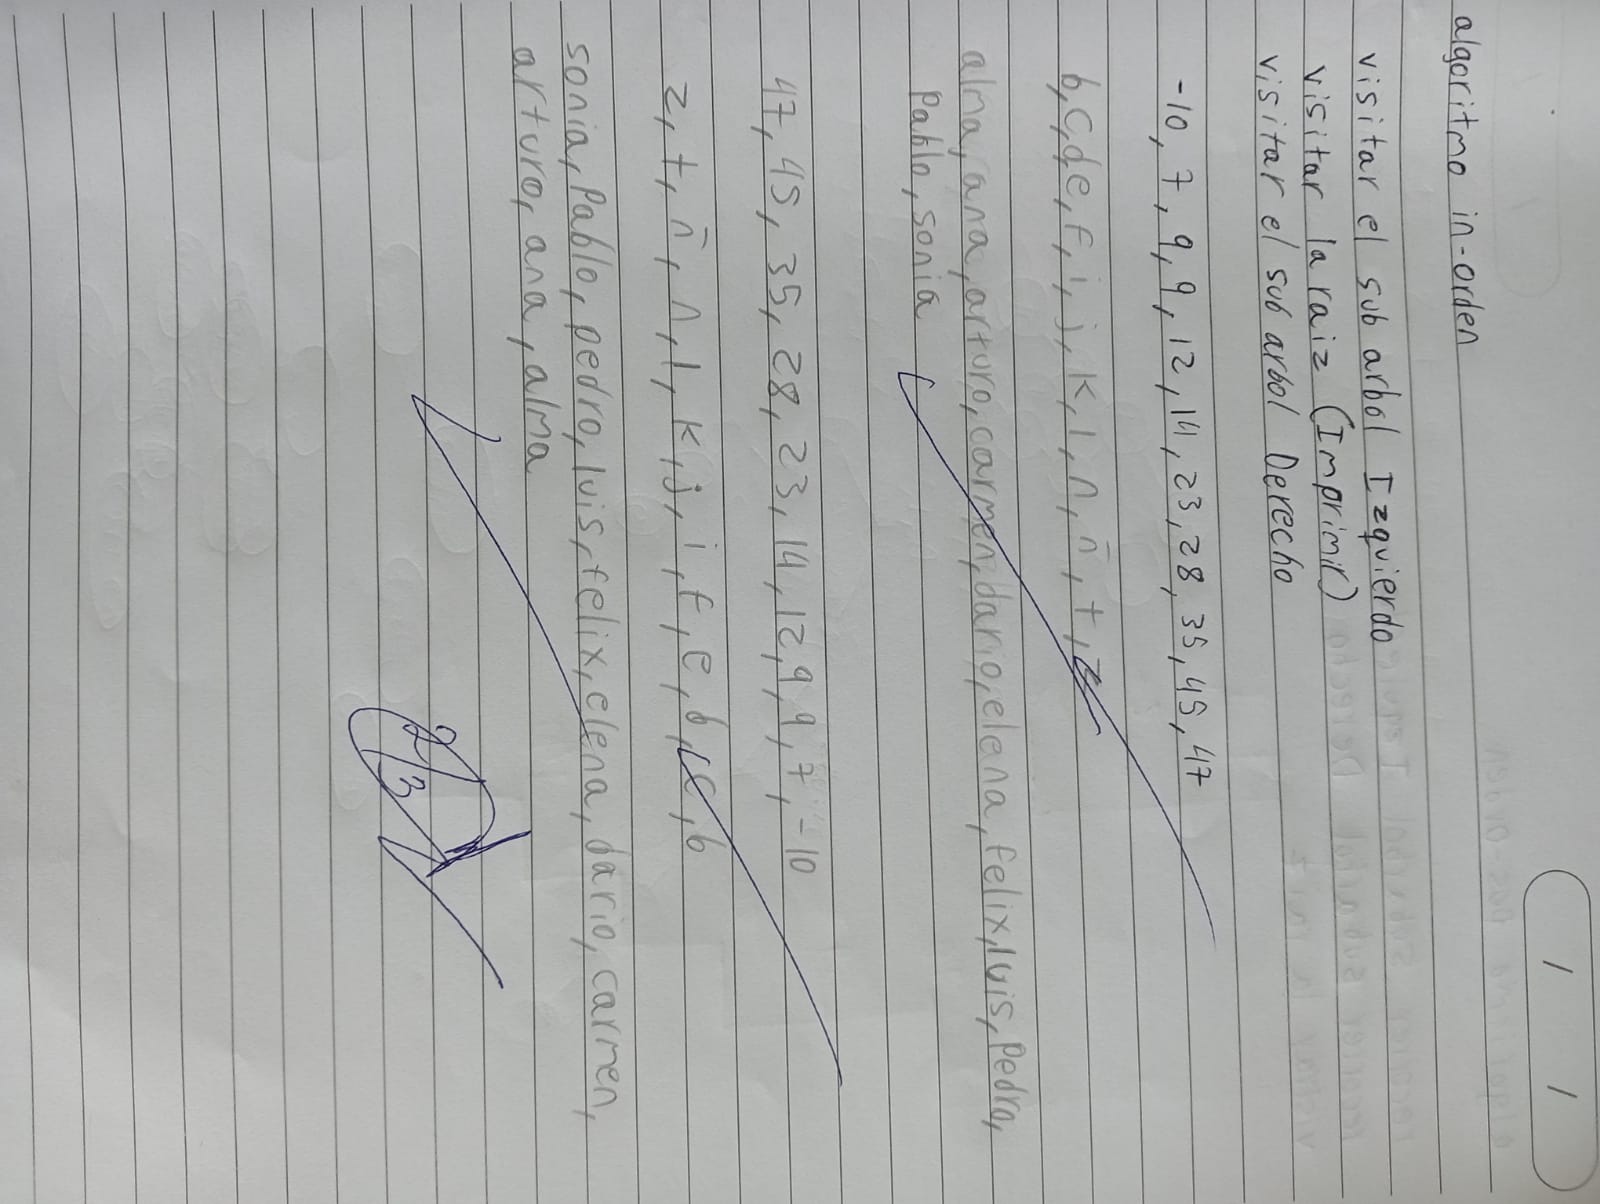 algoritmo in-orden
visitar el sub arbol Izquierdo
visitar la raiz (Imprimir)
visitar el sub arbol Derecho
-10, 7, 9, 9, 12, 14, 23, 28, 35, 45, 47
b, c, d, e, f, i, j, k, l, n, ñ, t, z
alma, ana, arturo, carmen, dario, elena, felix, luis, pedro,
Pablo, sonia
47, 45, 35, 28, 23, 14, 12, 9, 9, 7, -10
z, t, ñ, n, l, k, j, i, f, e, d, c, b
sonia, Pablo, pedro, luis, felix, elena, dario, carmen,
arturo, ana, alma
2/3